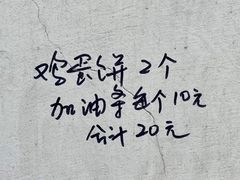 鸡蛋饼 2个
加油条每个10元
合计20元